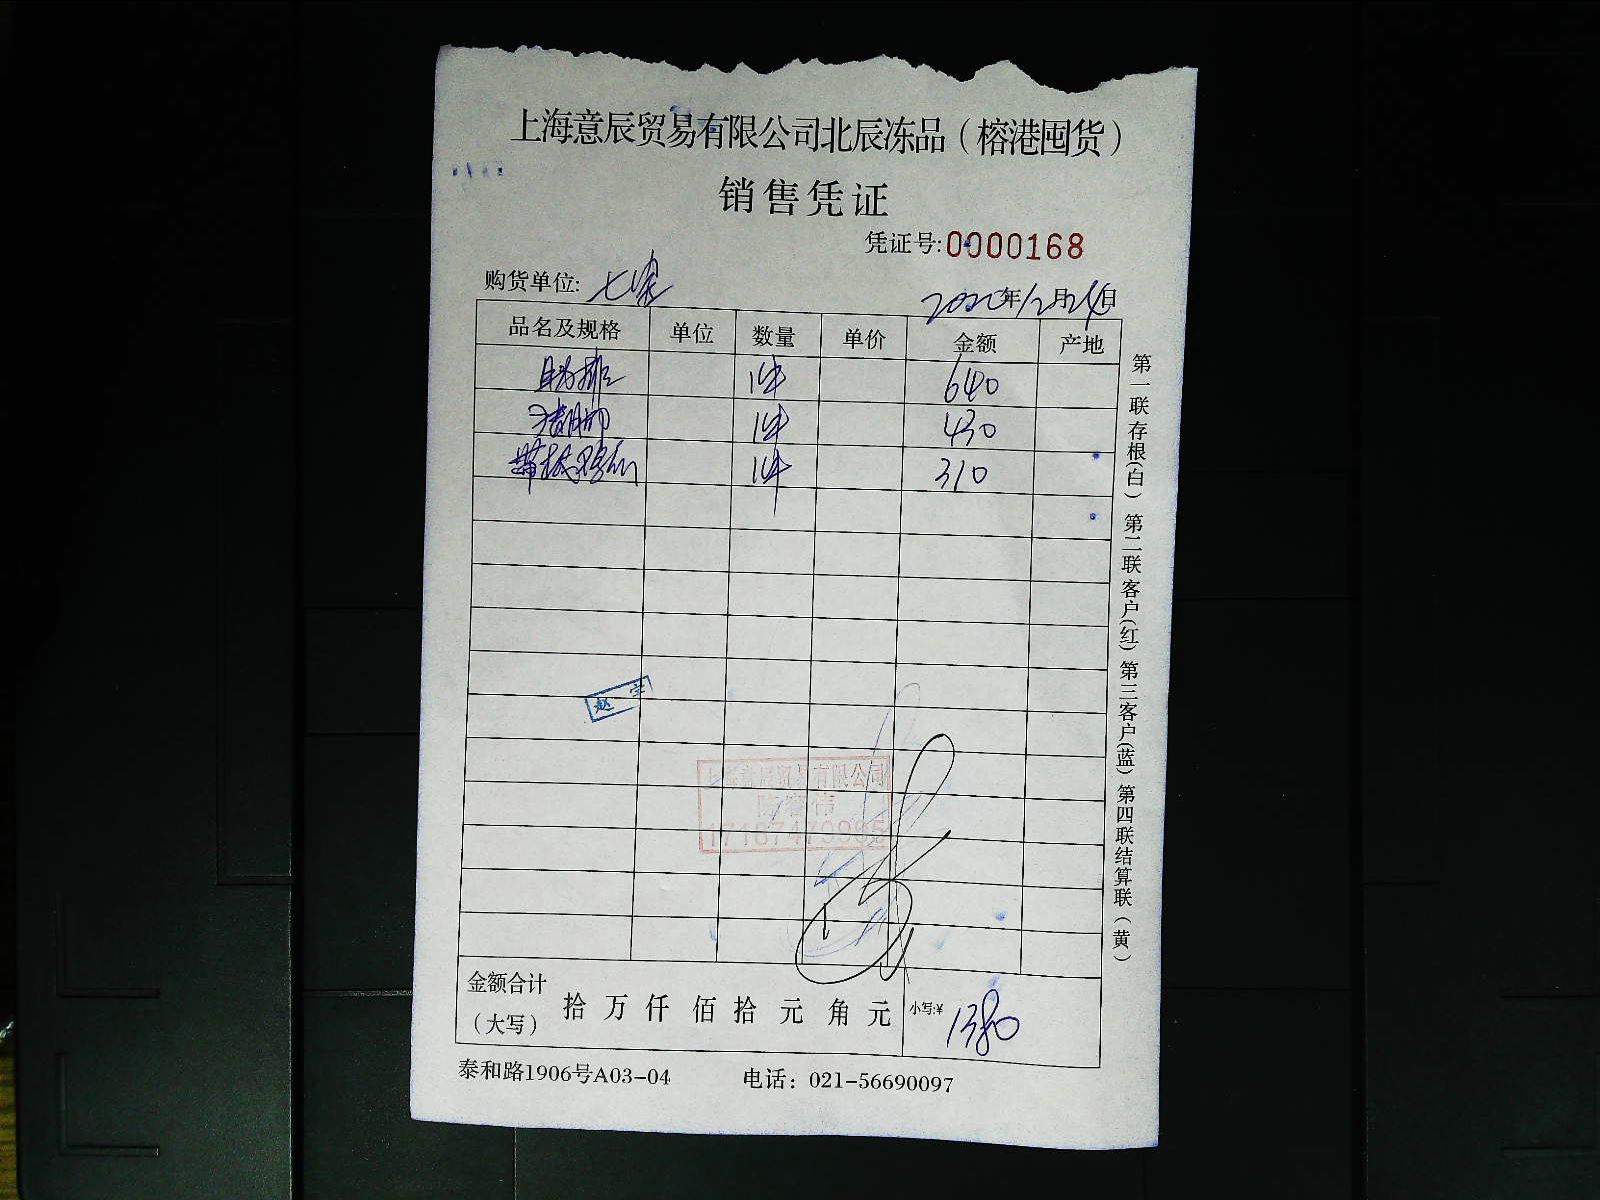 上海意辰贸易有限公司北辰冻品（榕港囤货）
销售凭证
凭证号:0000168
购货单位: 七宝
2020年12月24日
品名及规格 单位 数量 单价 金额 产地
肋排 1件 640
猪脚 1件 430
1件 310
金额合计（大写） 拾 万 仟 佰 拾 元 角 元 小写:¥ 1380
泰和路1906号A03-04 电话：021-56690097
第一联存根(白) 第二联客户(红) 第三客户(蓝) 第四联结算联(黄)
上海意辰贸易有限公司